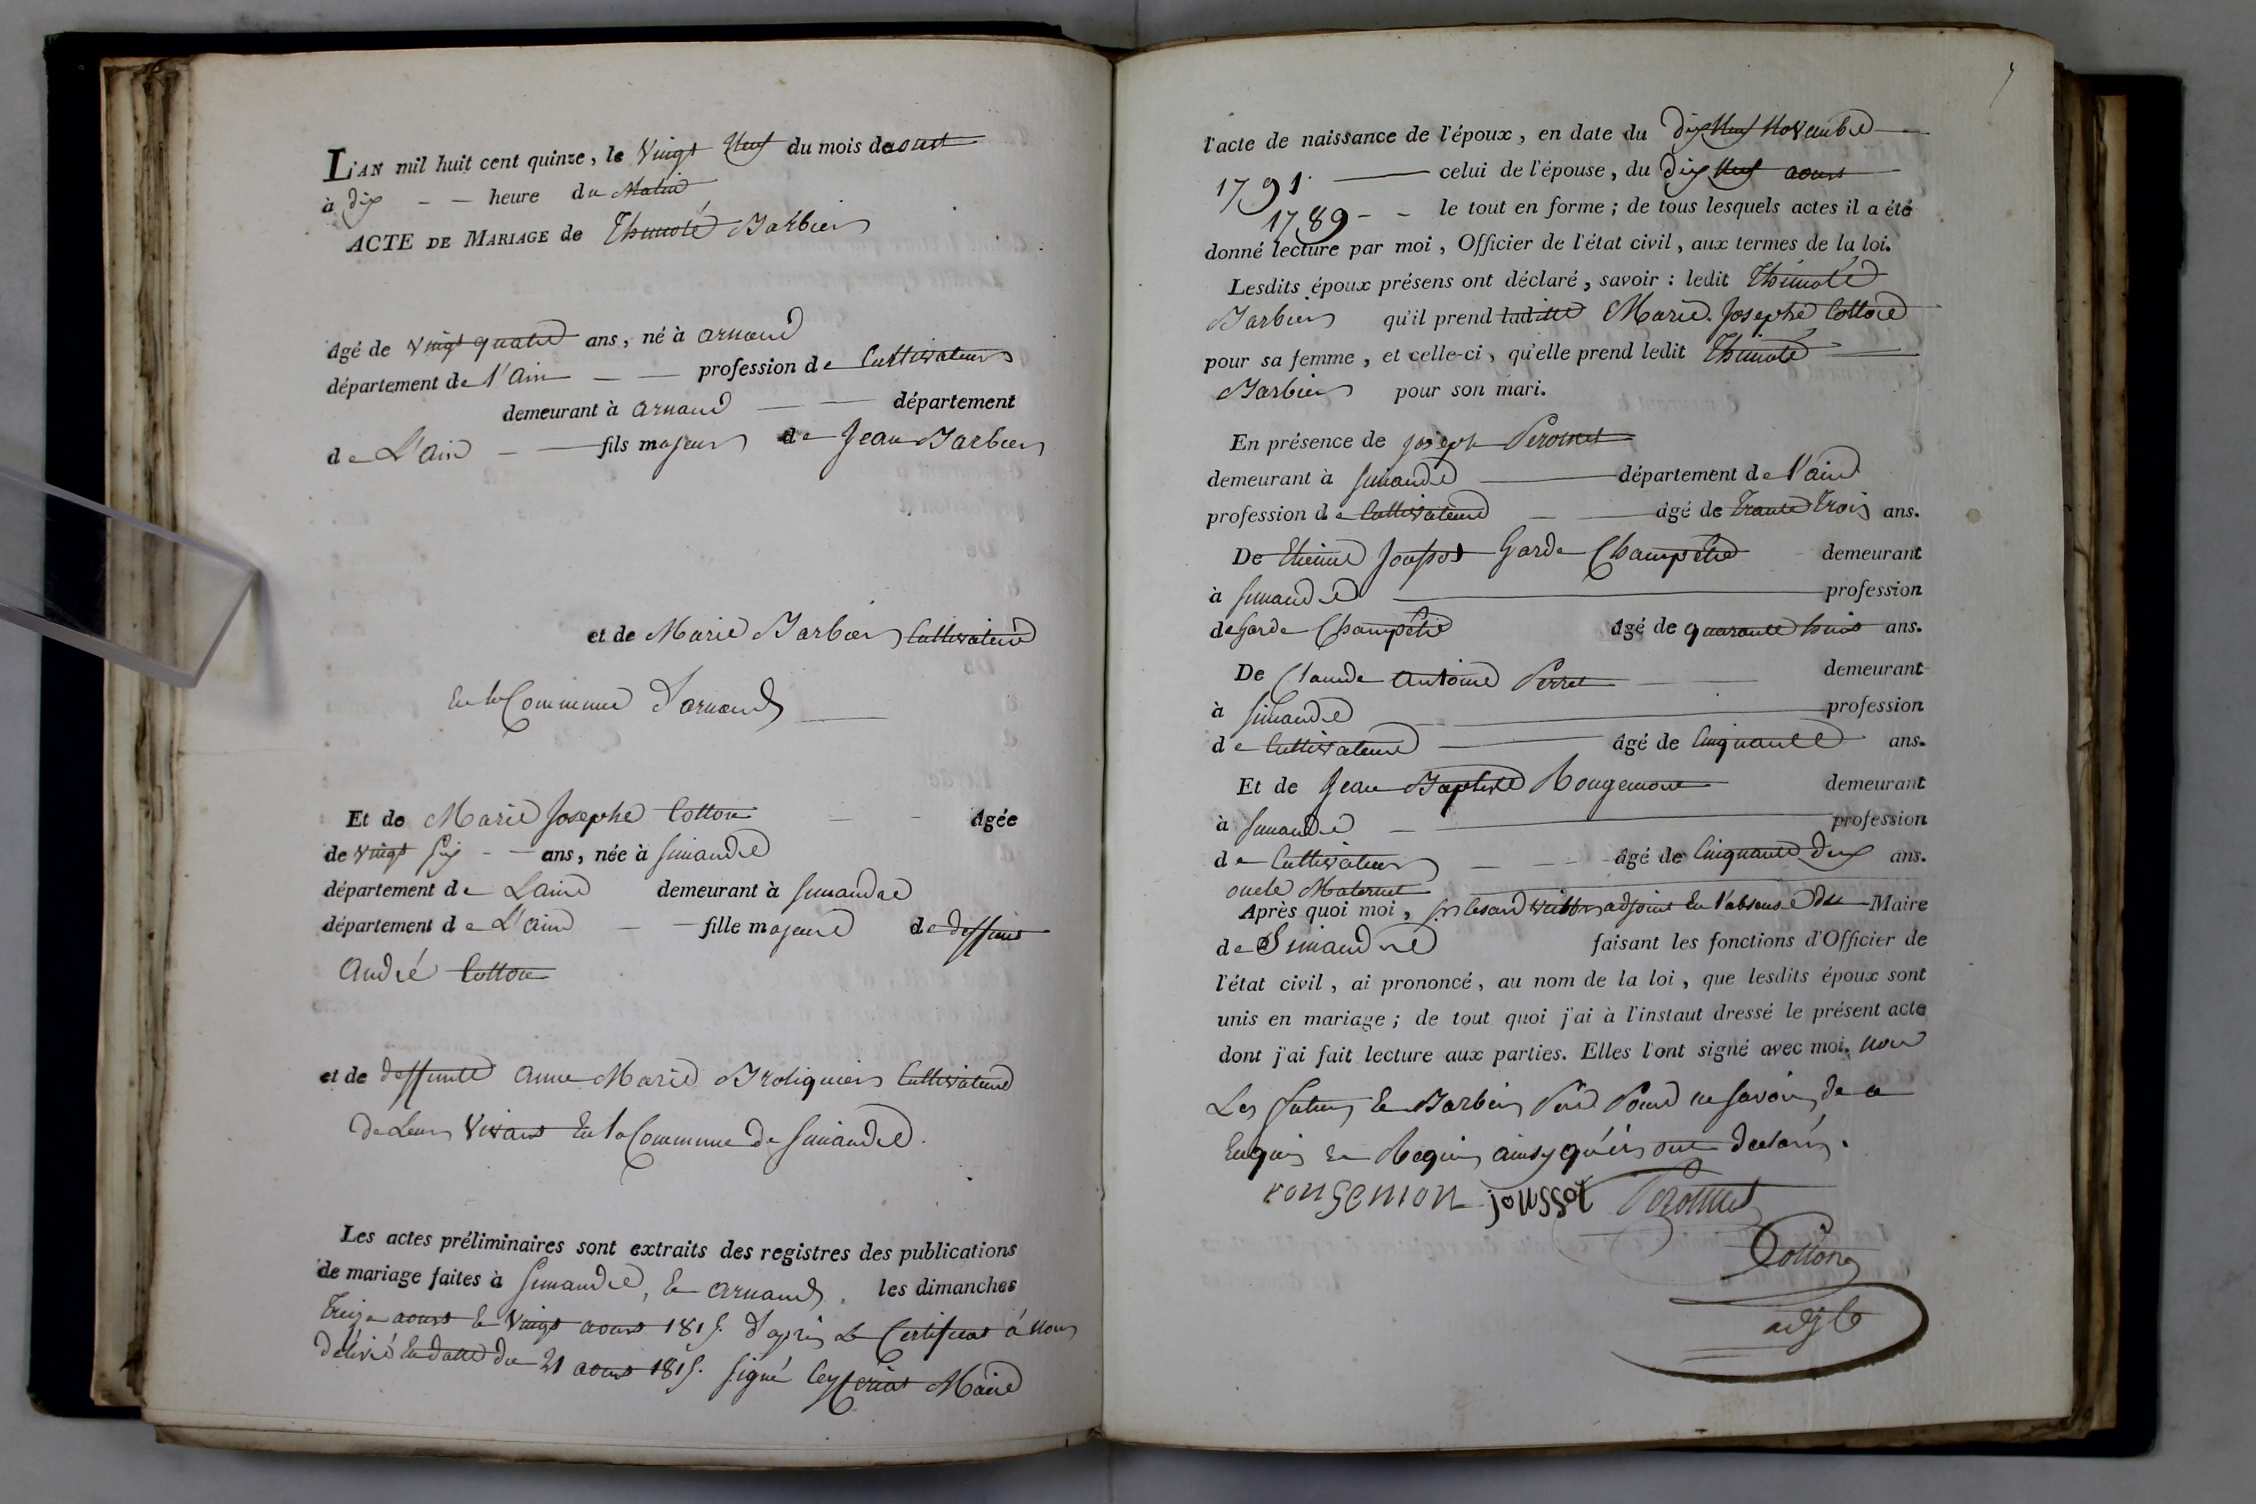 L'AN mil huit cent quinze, le Vingt Neuf du mois de aoust
à dix - - heure du Matin
ACTE DE MARIAGE de Thimoté Barbier
âgé de vingt quatre ans, né à arnand
département de l'Ain - - profession de Cultivateur
demeurant à arnand - - département
de L'ain - - fils majeur de Jean Barbier
et de Marie Barbier Cultivateurs
En la Commune d'arnand
Et de Marie Josephe Cotton - - âgée
de vingt six - - ans, née à Simandre
département de Lain demeurant à Simandre
département de L'ain - - fille majeure de deffunt
André Cotton
et de deffunte anne Marie Broliquier Cultivateurs
de Leurs Vivant En la Commune de Simandre.
Les actes préliminaires sont extraits des registres des publications
de mariage faites à Simandre, Et arnand, les dimanches
Treize aoust Et Vingt aoust 1815. d'après Le Certificat à nous
délivré En datte du 21 aoust 1815. signé Maire
l'acte de naissance de l'époux, en date du dix Neuf Novembre
1791. celui de l'épouse, du dix Neuf aoust
1789 - - le tout en forme ; de tous lesquels actes il a été
donné lecture par moi, Officier de l'état civil, aux termes de la loi.
Lesdits époux présens ont déclaré, savoir : ledit Thimoté
Barbier qu'il prend laditte Marie Josephe Cotton
pour sa femme, et celle-ci, qu'elle prend ledit Thimoté
Barbier pour son mari.
En présence de Joseph Perotinet
demeurant à Simandre département de l'ain
profession de Cultivateur - - âgé de Trante Trois ans.
De Etienne Joussot Garde Champêtre demeurant
à Simandre profession
de Garde Champêtre âgé de quarante huit ans.
De Claude Antoine Perret - - demeurant
à Simandre profession
de Cultivateur âgé de Cinquante ans.
Et de Jean Baptiste Rougemont demeurant
à Simandre - profession
de Cultivateur - - - âgé de Cinquante deux ans.
oncle Maternel
Après quoi moi, adjoint En l'absence du Maire
de Simandre faisant les fonctions d'Officier de
l'état civil, ai prononcé, au nom de la loi, que lesdits époux sont
unis en mariage ; de tout quoi j'ai à l'instant dressé le présent acte
dont j'ai fait lecture aux parties. Elles l'ont signé avec moi. non
Les futurs Et Barbier Père Pour ne savoir de ce
Enquis Et Requis ainsy qu'ils ont declarés.
rougemon joussot Perotinet
Cotton
adjt